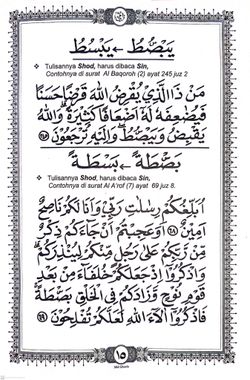 يَبْصُطُ ← يَبْسُطُ
❖ Tulisannya Shod, harus dibaca Sin,
Contohnya di surat Al Baqoroh (2) ayat 245 juz 2
مَنْ ذَا الَّذِيْ يُقْرِضُ اللّٰهَ قَرْضًا حَسَنًا
فَيُضٰعِفَهٗ لَهٗٓ اَضْعَافًا كَثِيْرَةً ۗوَاللّٰهُ
يَقْبِضُ وَيَبْصُۣطُۖ وَاِلَيْهِ تُرْجَعُوْنَ ۝٢٤٥
بَصْطَةً ← بَسْطَةً
❖ Tulisannya Shod, harus dibaca Sin,
Contohnya di surat Al A'rof (7) ayat 69 juz 8.
اُبَلِّغُكُمْ رِسٰلٰتِ رَبِّيْ وَاَنَا۠ لَكُمْ نَاصِحٌ
اَمِيْنٌ ۝٦٨ اَوَعَجِبْتُمْ اَنْ جَاۤءَكُمْ ذِكْرٌ
مِّنْ رَّبِّكُمْ عَلٰى رَجُلٍ مِّنْكُمْ لِيُنْذِرَكُمْۗ
وَاذْكُرُوْٓا اِذْ جَعَلَكُمْ خُلَفَاۤءَ مِنْۢ بَعْدِ
قَوْمِ نُوْحٍ وَّزَادَكُمْ فِى الْخَلْقِ بَصْۣطَةً ۚ
فَاذْكُرُوْٓا اٰلَاۤءَ اللّٰهِ لَعَلَّكُمْ تُفْلِحُوْنَ ۝٦٩
١٥